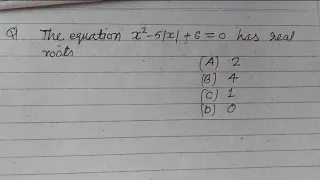 Q The equation x²-5|x|+6=0 has real
roots
(A) 2
(B) 4
(C) 1
(D) 0